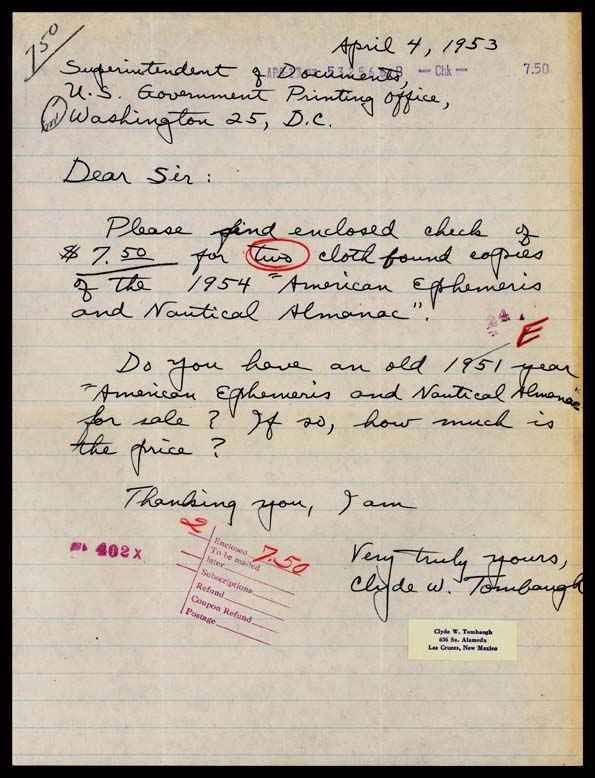 7.50
April 4, 1953
Chk — 7.50
Superintendent of Documents,
U.S. Government Printing Office,
Washington 25, D.C.
Dear Sir:
Please find enclosed check of
$ 7.50 for two cloth found copies
of the 1954 "American Ephemeris
and Nautical Almanac".
E
Do you have an old 1951 year
"American Ephemeris and Nautical Almanac"
for sale? If so, how much is
the price?
Thanking you, I am
402X
2
Enclosed 7.50
To be mailed
later
Subscriptions
Refund
Coupon Refund
Postage
Very truly yours,
Clyde W. Tombaugh
Clyde W. Tombaugh
636 So. Alameda
Las Cruces, New Mexico